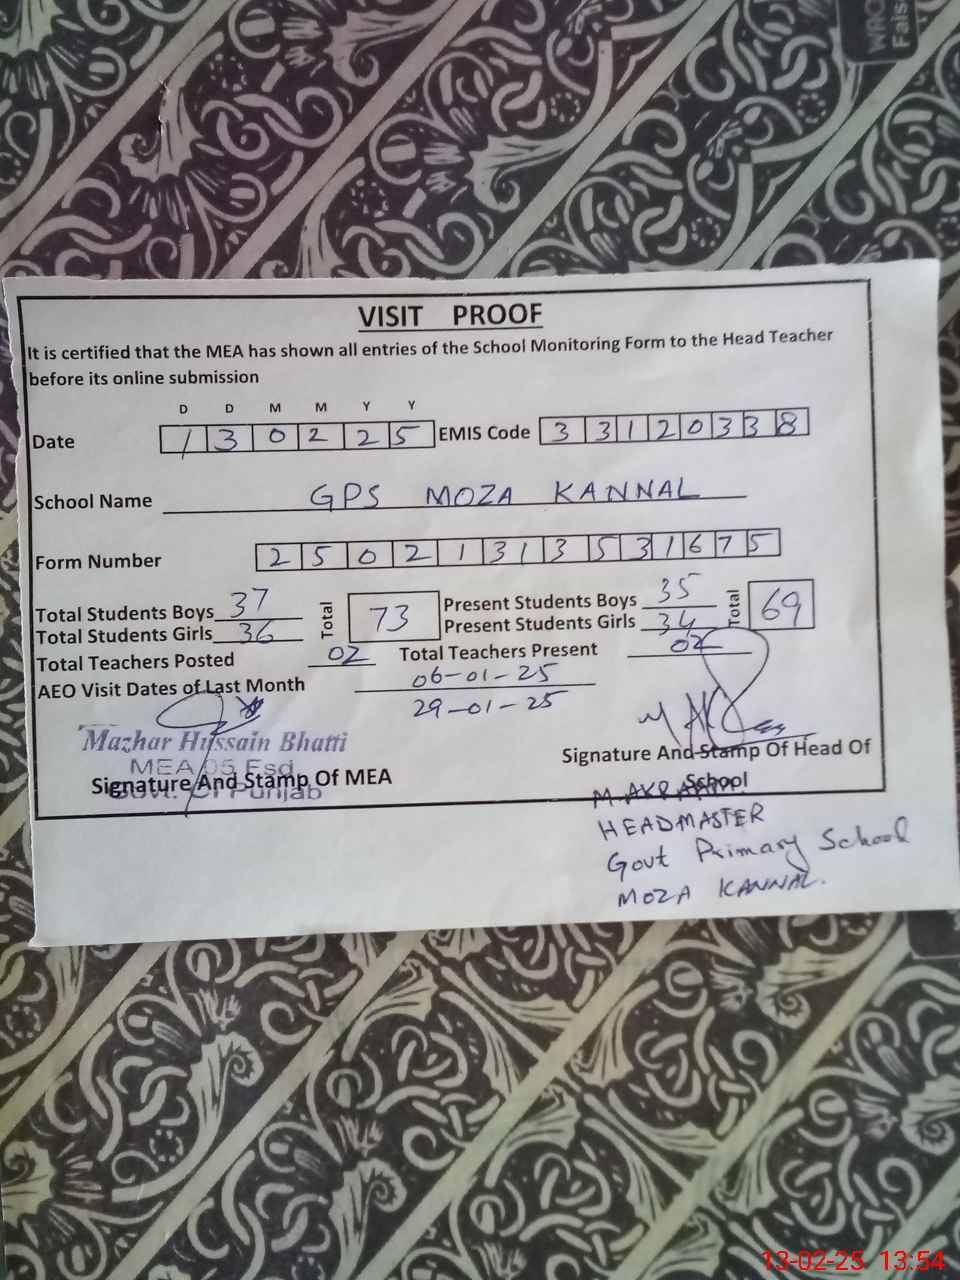 WRO
Fais
VISIT PROOF
It is certified that the MEA has shown all entries of the School Monitoring Form to the Head Teacher
before its online submission
D D M M Y Y
Date 1 3 0 2 2 5 EMIS Code 3 3 1 2 0 3 3 8
School Name GPS MOZA KANNAL
Form Number 2 5 0 2 1 3 1 3 5 3 1 6 7 5
Total Students Boys 37 Total 73 Present Students Boys 35 Total 69
Total Students Girls 36 Present Students Girls 34
Total Teachers Posted 02 Total Teachers Present 02
AEO Visit Dates of Last Month 06-01-25
29-01-25
Mazhar Hussain Bhatti
MEA 05 Fsd
Govt. Of Punjab
Signature And Stamp Of MEA
Signature And Stamp Of Head Of
School
M. AKRAM
HEADMASTER
Govt Primary School
MOZA KANNAL.
13-02-25 13:54